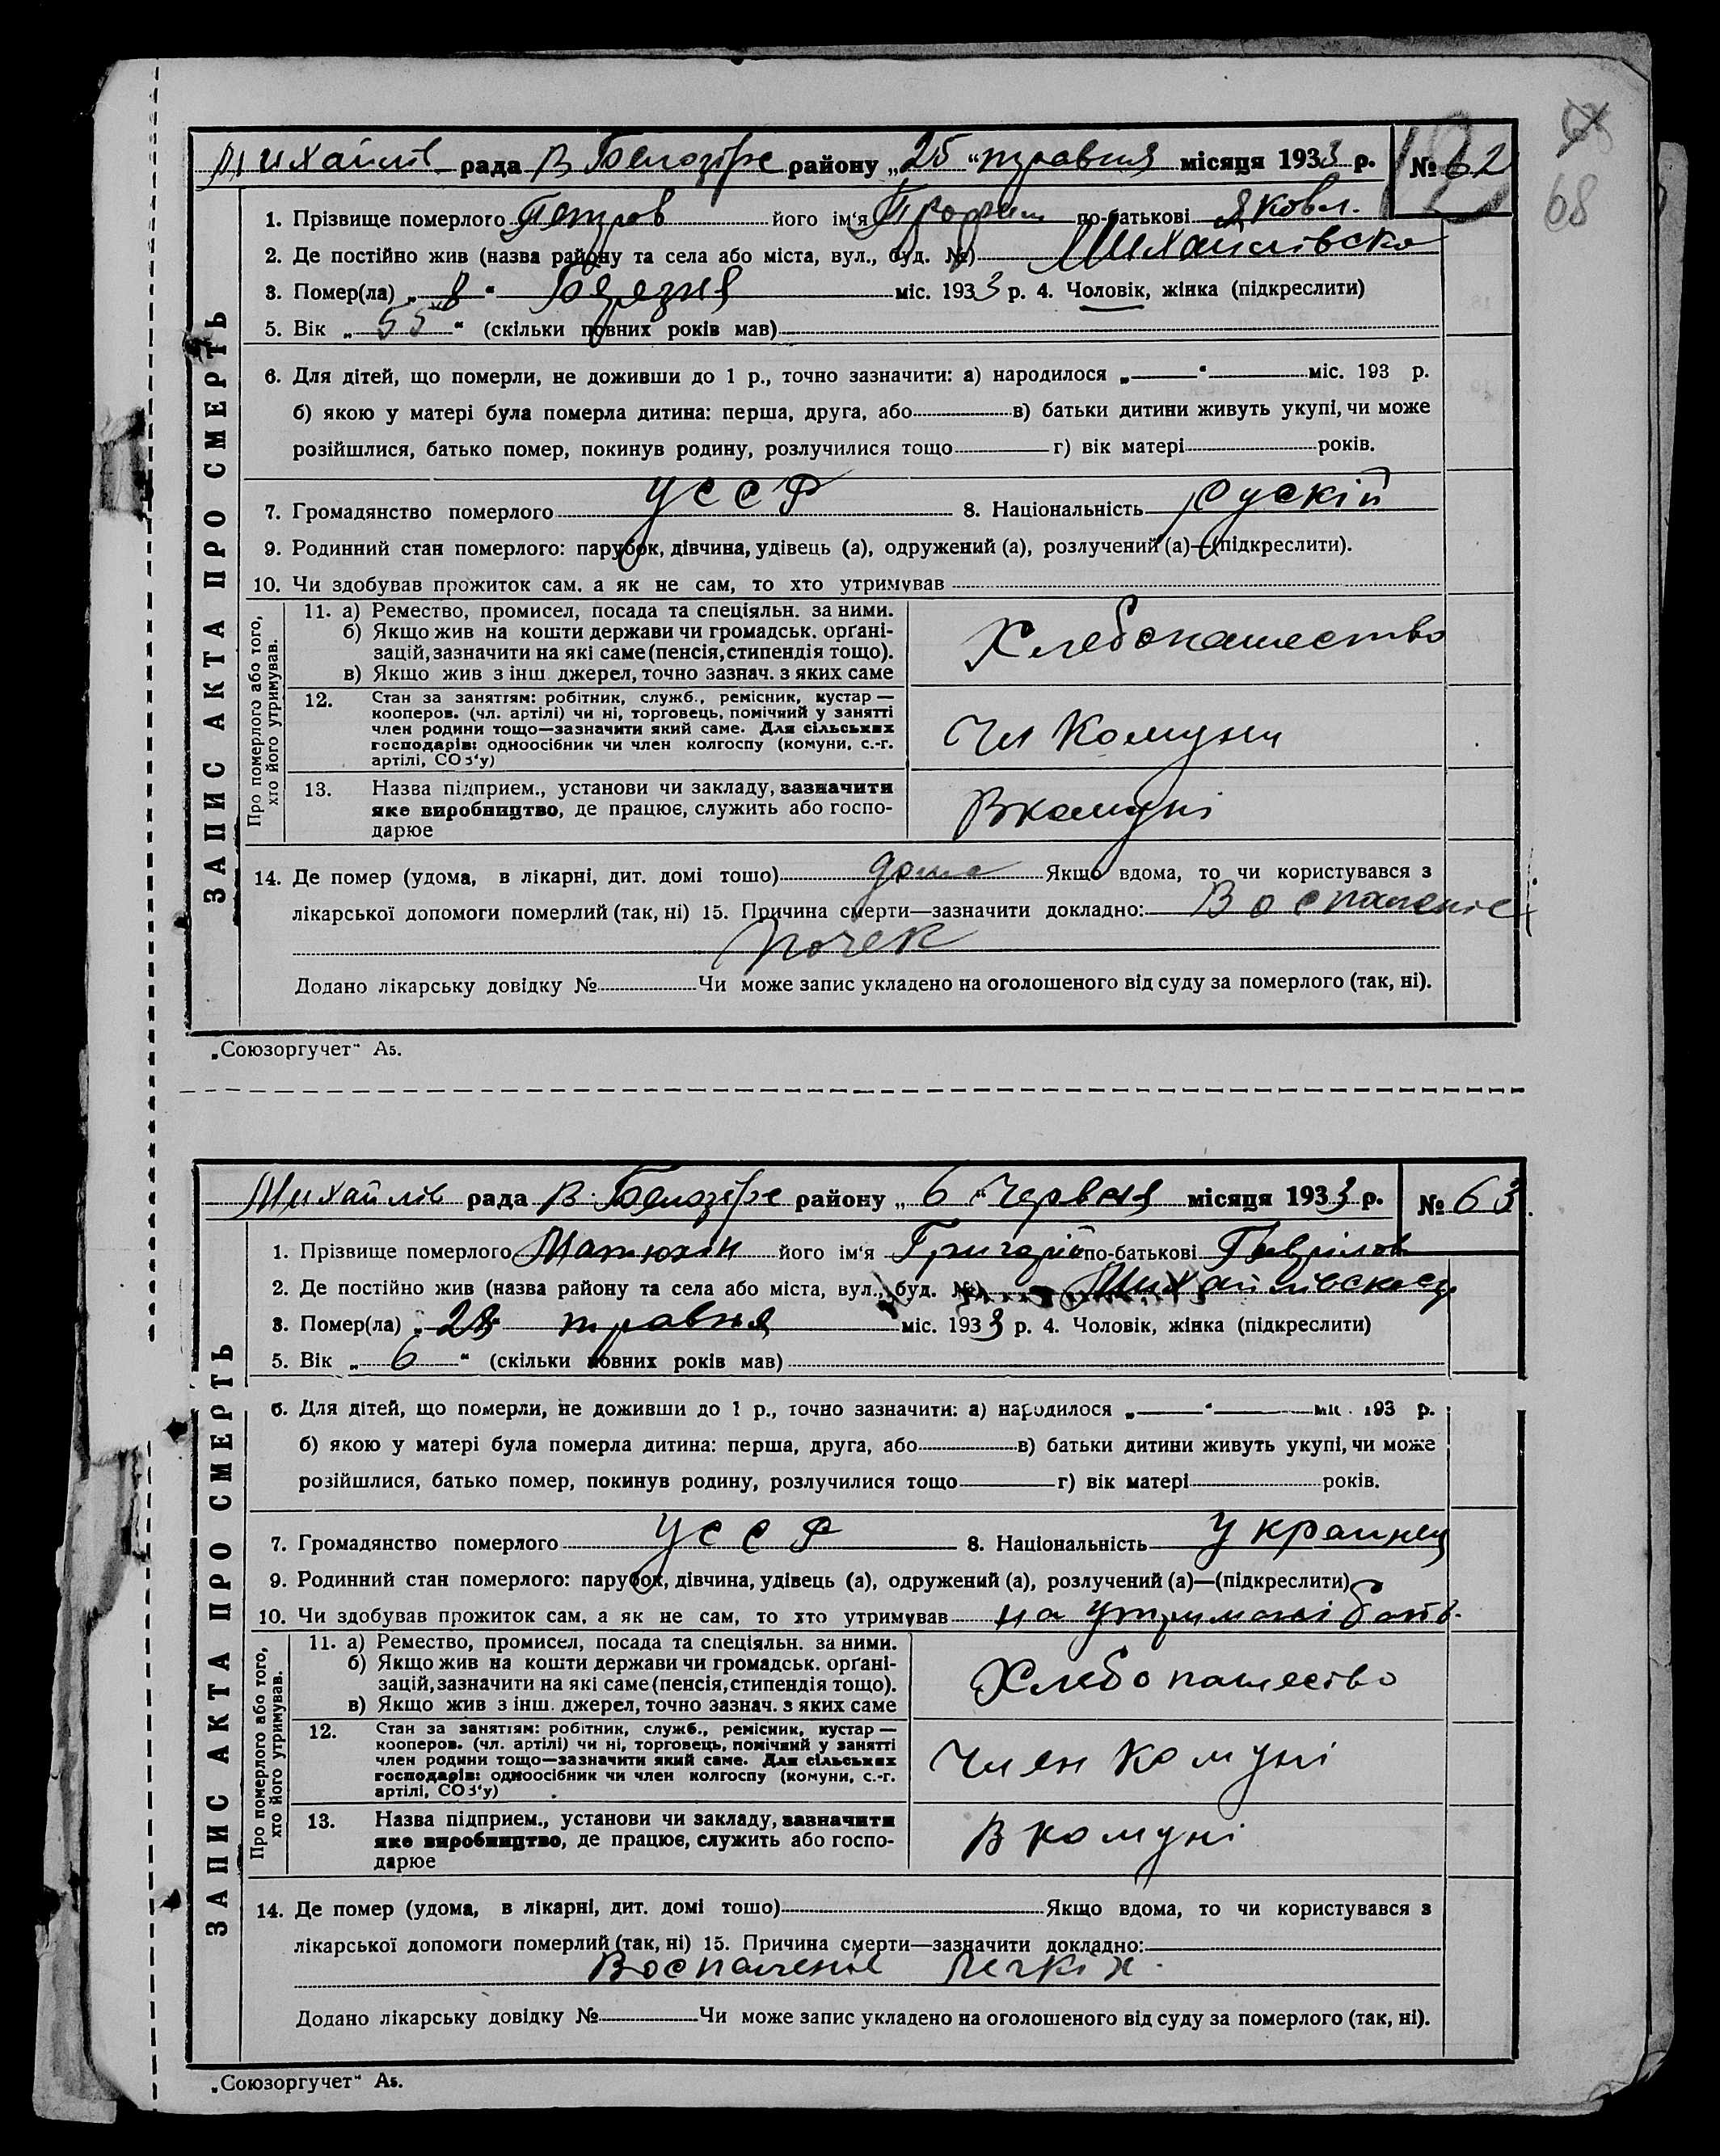 68
Михайлів рада В Белозірс району „25“ травня місяця 1933 р. № 62
68
1. Прізвище померлого Петров його ім‘я Трофим по-батькові Яковл.
2. Де постійно жив (назва району та села або міста, вул., буд. №) Михайлівсько
3. Помер(ла) „8“ Березня міс. 1933 р. 4. Чоловік, жінка (підкреслити)
5. Вік „55“ (скільки повних років мав)
6. Для дітей, що померли, не доживши до 1 р., точно зазначити: а) народилося „ “ міс. 193 р.
б) якою у матері була померла дитина: перша, друга, або в) батьки дитини живуть укупі, чи може
розійшлися, батько помер, покинув родину, розлучилися тощо г) вік матері років.
7. Громадянство померлого УССР 8. Національність Руский
9. Родинний стан померлого: парубок, дівчина, удівець (а), одружений (а), розлучений (а)—(підкреслити).
10. Чи здобував прожиток сам, а як не сам, то хто утримував
ЗАПИС АКТА ПРО СМЕРТЬ
Про померлого або того,
хто його утримував.
11. а) Ремество, промисел, посада та спеціяльн. за ними.
б) Якщо жив на кошти держави чи громадськ. орґані-
зацій, зазначити на які саме (пенсія, стипендія тощо).
в) Якщо жив з інш. джерел, точно зазнач. з яких саме
Хлебопашество
12. Стан за заняттям: робітник, служб., ремісник, кустар —
кооперов. (чл. артілі) чи ні, торговець, помічний у занятті
член родини тощо—зазначити який саме. Для сільських
господарів: одноосібник чи член колгоспу (комуни, с.-г.
артілі, СОЗ‘у)
Чл Комуни
13. Назва підприєм., установи чи закладу, зазначити
яке виробництво, де працює, служить або госпо-
дарює
В комуні
14. Де помер (удома, в лікарні, дит. домі тощо) дома Якщо вдома, то чи користувався з
лікарської допомоги померлий (так, ні) 15. Причина смерти—зазначити докладно: Воспаленіе
почек
Додано лікарську довідку № Чи може запис укладено на оголошеного від суду за померлого (так, ні).
„Союзоргучет“ А5.
Михайлів рада В. Белозірс району „6“ Червня місяця 1933 р. № 63
1. Прізвище померлого Матюхін його ім‘я Григорій по-батькові Гаврілов
2. Де постійно жив (назва району та села або міста, вул., буд. №)
3. Помер(ла) „28“ травня міс. 1933 р. 4. Чоловік, жінка (підкреслити)
5. Вік „6“ (скільки повних років мав)
6. Для дітей, що померли, не доживши до 1 р., точно зазначити: а) народилося „ “ міс. 193 р.
б) якою у матері була померла дитина: перша, друга, або в) батьки дитини живуть укупі, чи може
розійшлися, батько помер, покинув родину, розлучилися тощо г) вік матері років.
7. Громадянство померлого УССР 8. Національність Украинец
9. Родинний стан померлого: парубок, дівчина, удівець (а), одружений (а), розлучений (а)—(підкреслити)
10. Чи здобував прожиток сам, а як не сам, то хто утримував на утримані батів.
ЗАПИС АКТА ПРО СМЕРТЬ
Про померлого або того,
хто його утримував.
11. а) Ремество, промисел, посада та спеціяльн. за ними.
б) Якщо жив на кошти держави чи громадськ. орґані-
зацій, зазначити на які саме (пенсія, стипендія тощо).
в) Якщо жив з інш. джерел, точно зазнач. з яких саме
Хлебопашество
12. Стан за заняттям: робітник, служб., ремісник, кустар —
кооперов. (чл. артілі) чи ні, торговець, помічний у занятті
член родини тощо—зазначити який саме. Для сільських
господарів: одноосібник чи член колгоспу (комуни, с.-г.
артілі, СОЗ‘у)
Член комуні
13. Назва підприєм., установи чи закладу, зазначити
яке виробництво, де працює, служить або госпо-
дарює
В комуні
14. Де помер (удома, в лікарні, дит. домі тощо) Якщо вдома, то чи користувався з
лікарської допомоги померлий (так, ні) 15. Причина смерти—зазначити докладно:
Воспаленіе легкіх.
Додано лікарську довідку № Чи може запис укладено на оголошеного від суду за померлого (так, ні).
„Союзоргучет“ А5.